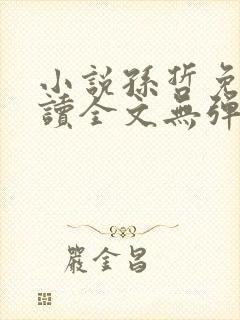 小說孫哲免
讀全文無彈
嚴金昌